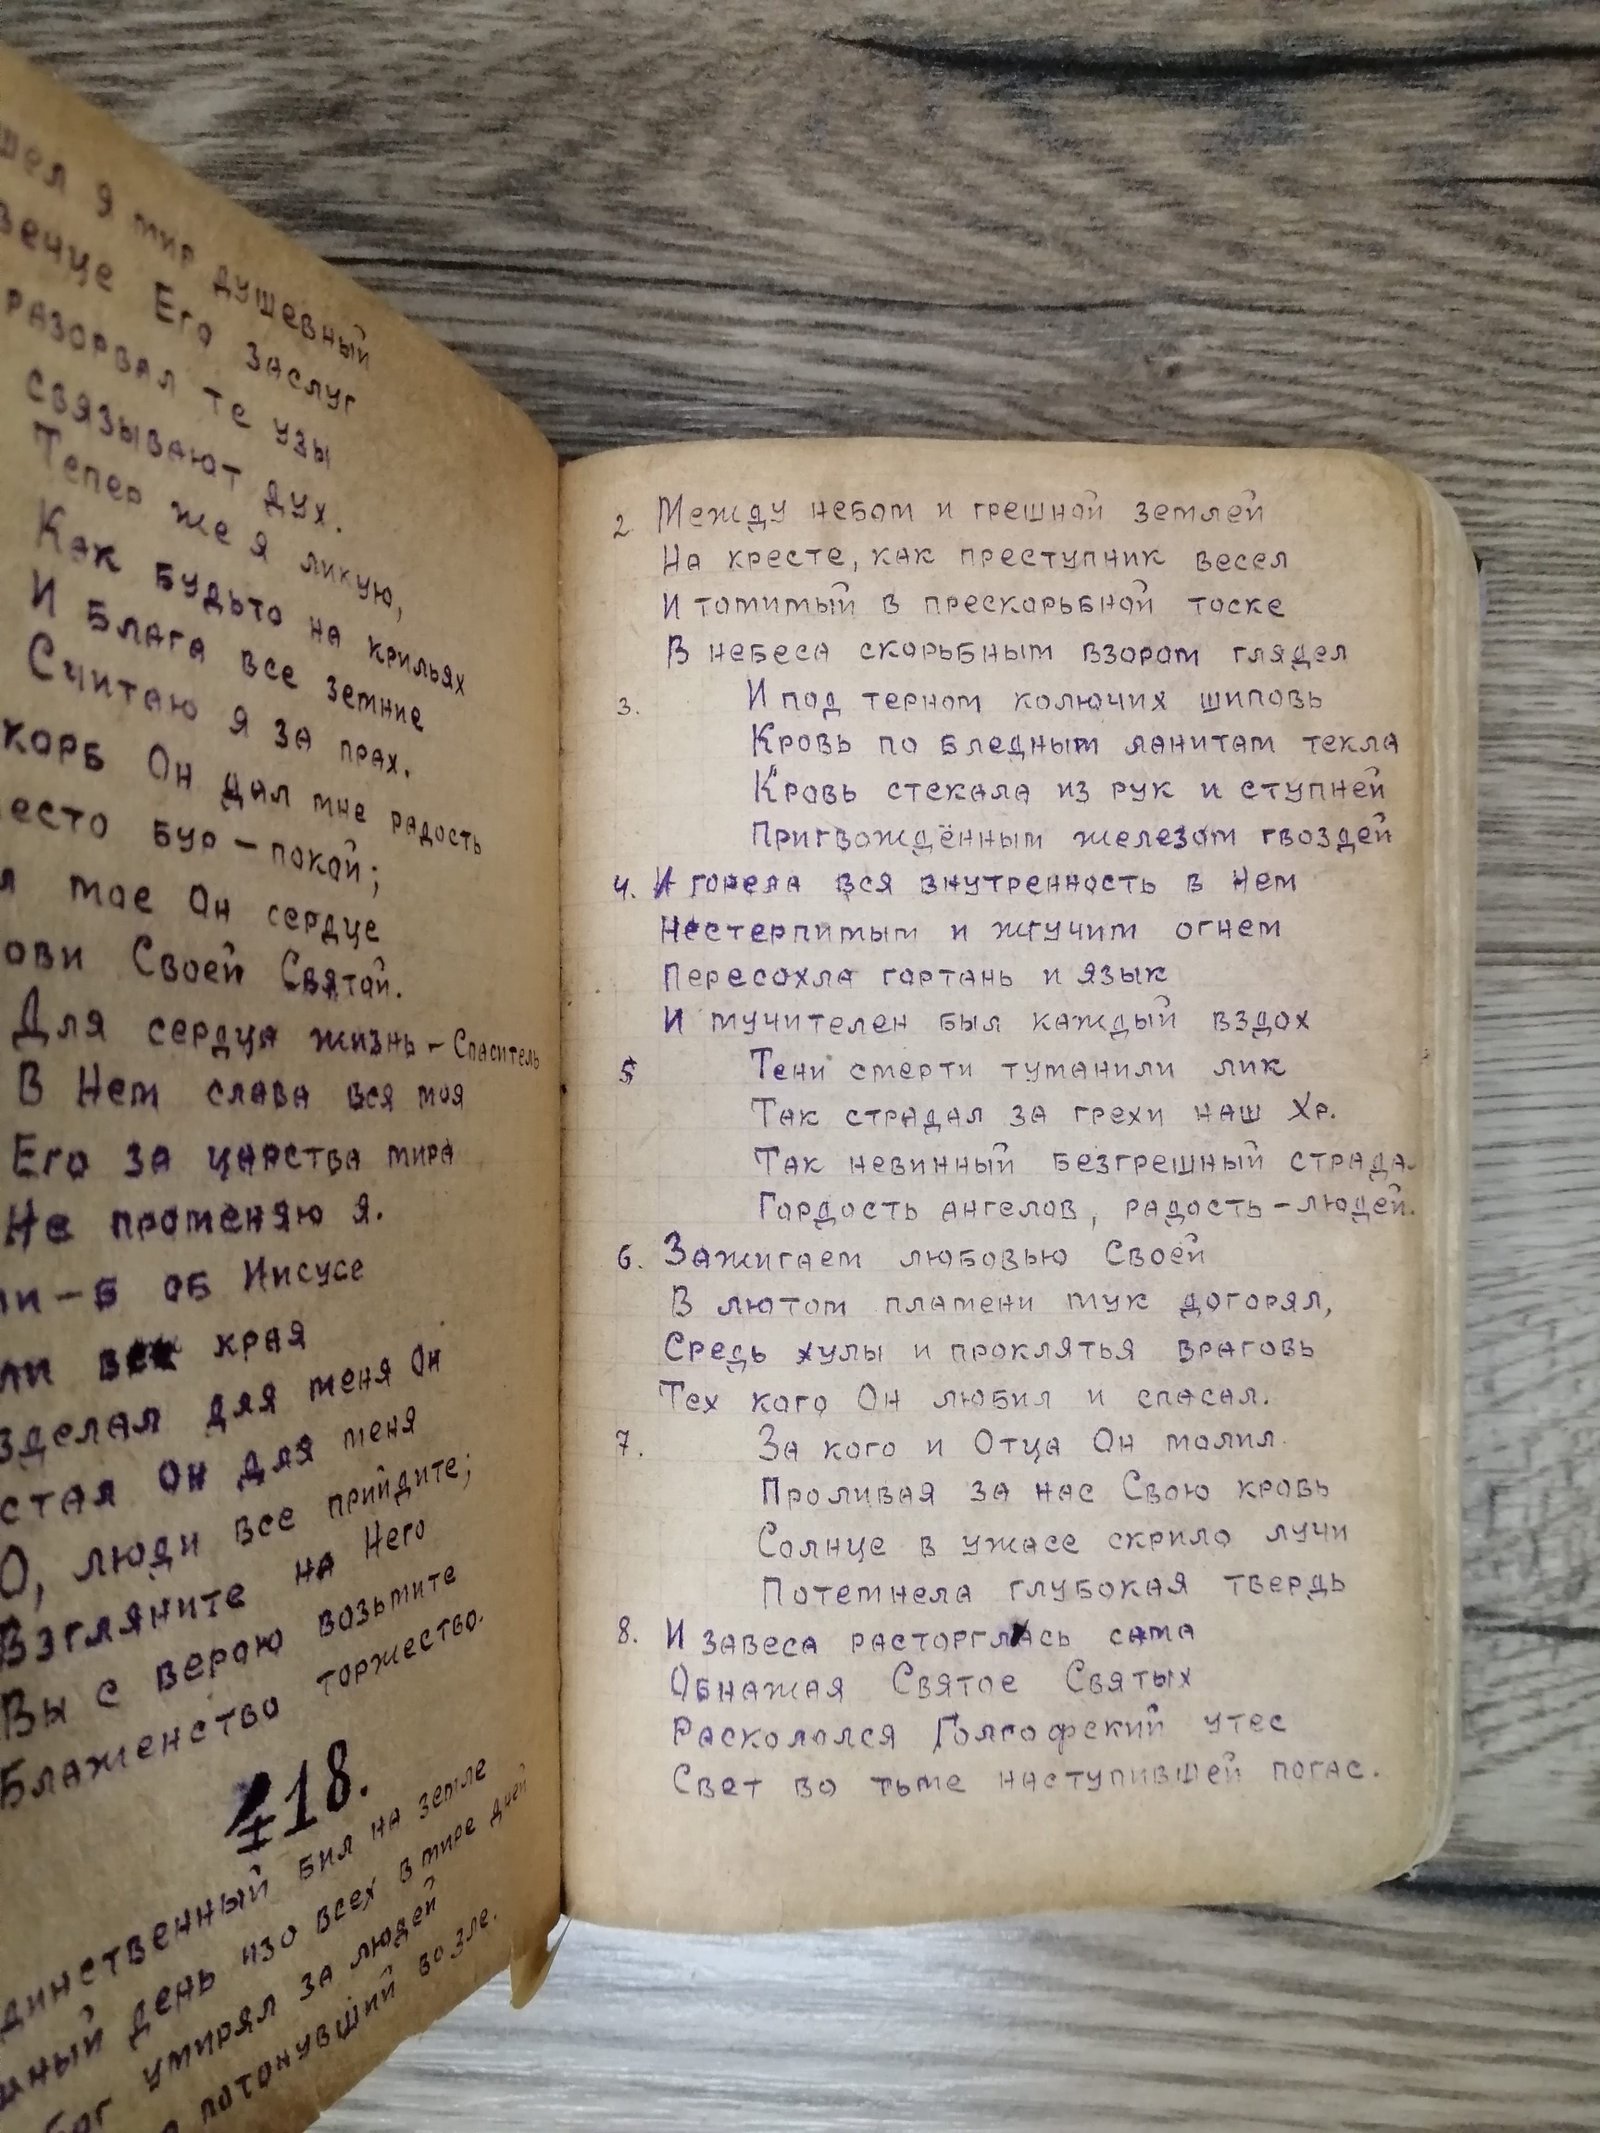 шел я мир душевный
венце Его заслуг
разорвал те узы
связывают дух.
Тепер же я ликую,
Как будьто на крильях
И блага все земние
Считаю я за прах.
корб Он дал мне радость
есто бур - покой;
л мое Он сердце
ови Своей Святой.
Для сердца жизнь - Спаситель
В Нем слава вся моя
Его за царства мира
Не променяю я.
ли - б об Иисусе
ли все края
зделал для меня Он
стал Он для меня
О, люди все прийдите;
Взгляните на Него
Вы с верою возьмите
Блаженство торжество.
418.
динственный бил на земле
шный день изо всех в мире дней
бог умирял за людей
потонувший во зле.
2. Между небом и грешной землей
На кресте, как преступник весел
И томимый в прескорьбной тоске
В небеса скорьбным взором глядел
3. И под терном колючих шиповь
Кровь по бледным ланитам текла
Кровь стекала из рук и ступней
Пригвождённым железом гвоздей
4. И горела вся внутренность в Нем
Нестерпимым и жгучим огнем
Пересохла гортань и язык
И мучителен был каждый вздох
5 Тени смерти туманили лик
Так страдал за грехи наш Хр.
Так невинный безгрешный страда-
Гордость ангелов, радость - людей.
6. Зажигаем любовью Своей
В лютом пламени мук догорял,
Средь хулы и проклятья враговь
Тех кого Он любил и спасал.
7. За кого и Отца Он молил.
Проливая за нас Свою кровь
Солнце в ужасе скрило лучи
Потемнела глубокая твердь
8. И завеса расторглась сама
Обнажая Святое Святых
Раскололся Голгофский утес
Свет во тьме наступившей погас.